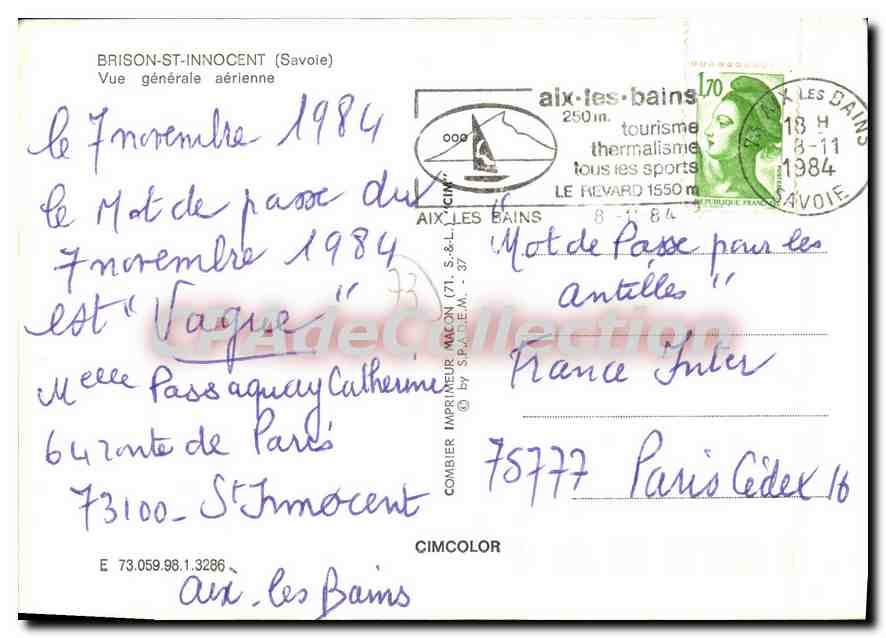 BRISON-ST-INNOCENT (Savoie)
Vue générale aérienne
le 7 novembre 1984
le Mot de passe du
7 novembre 1984
est "Vague"
Melle Passaquay Catherine
64 route de Paris
73100 - St Innocent
Aix-les Bains
E 73.059.98.1.3286
73
COMBIER IMPRIMEUR MACON (71. S.&L.) "CIM"
© by S.P.A.D.E.M. - 37
CIMCOLOR
aix-les-bains
250 m.
tourisme
thermalisme
tous les sports
LE REVARD 1550 m
AIX LES BAINS
8 -11 84
1,70
REPUBLIQUE FRANCAISE
73 AIX LES BAINS
18 H
8-11
1984
SAVOIE
"Mot de Passe pour les
antilles"
France Inter
75777 Paris Cédex 16
CPAdeCollection